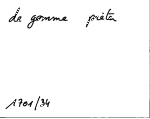 da gomme prêter
1701/34